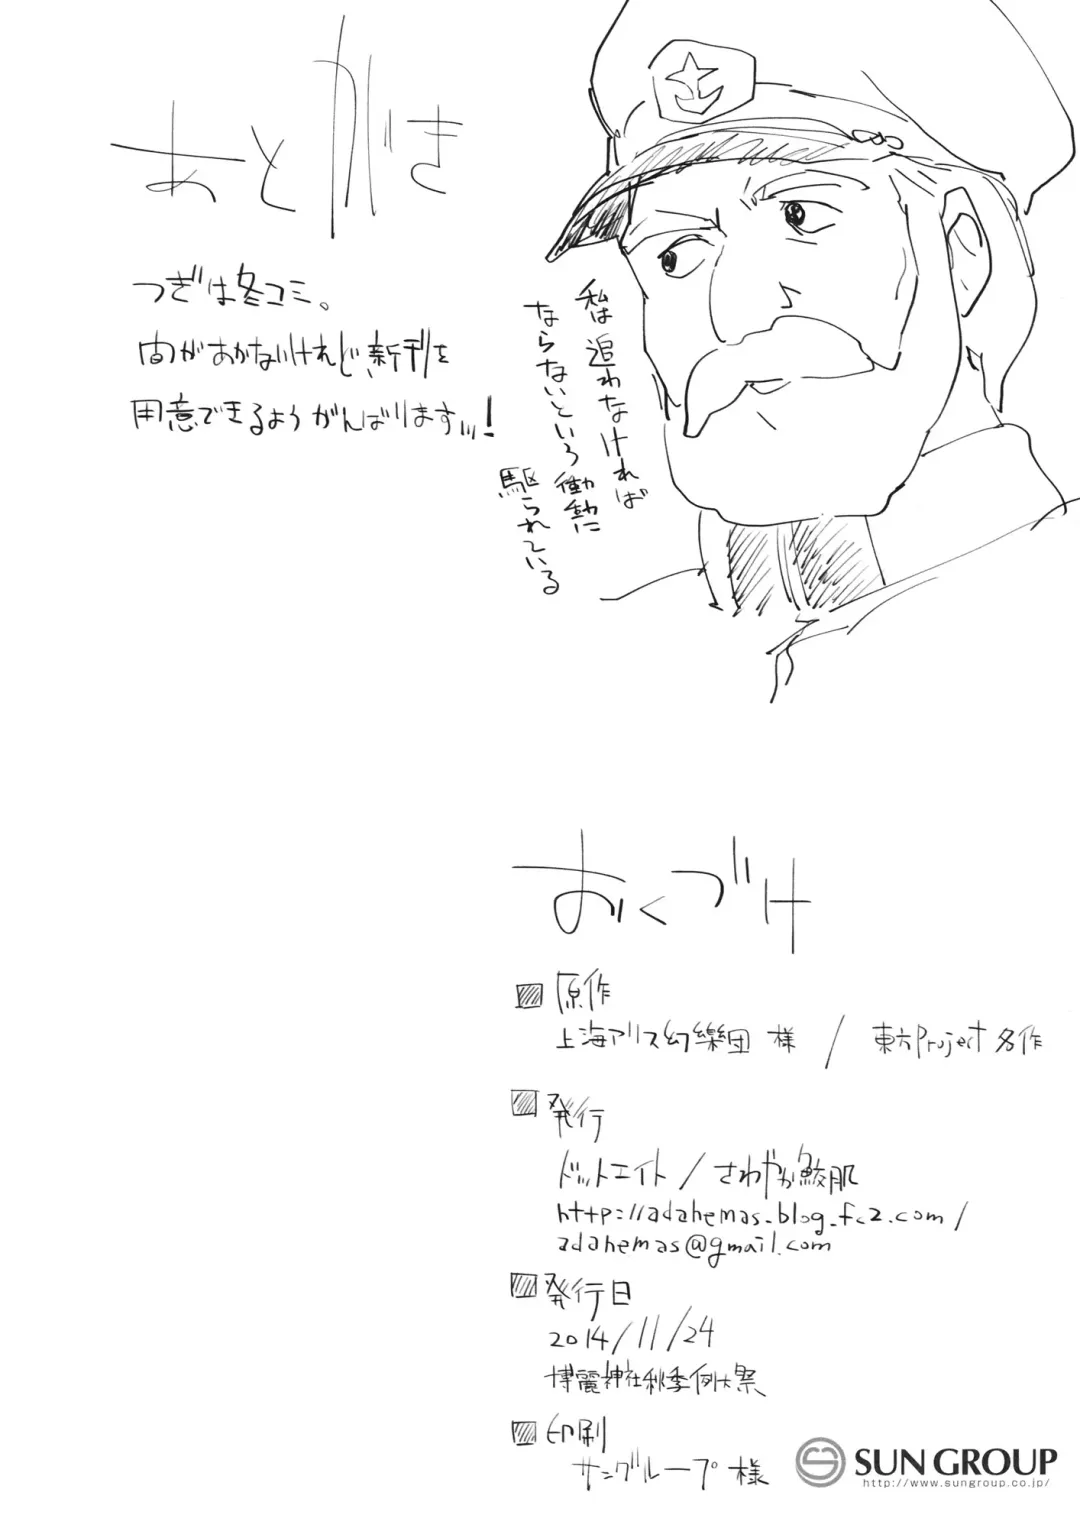 あとがき
つぎは冬コミ。
間があかないけれど、新刊を
用意できるようがんばりますッ!
私は追わなければ
ならないという衝動に
駆られている
おくづけ
原作
上海アリス幻樂団 様 / 東方Project 名作
発行
ドットエイト / さわやか鮫肌
http://adahemas.blog.fc2.com/
adahemas@gmail.com
発行日
2014/11/24
博麗神社秋季例大祭
印刷
サングループ 様
SUN GROUP
http://www.sungroup.co.jp/